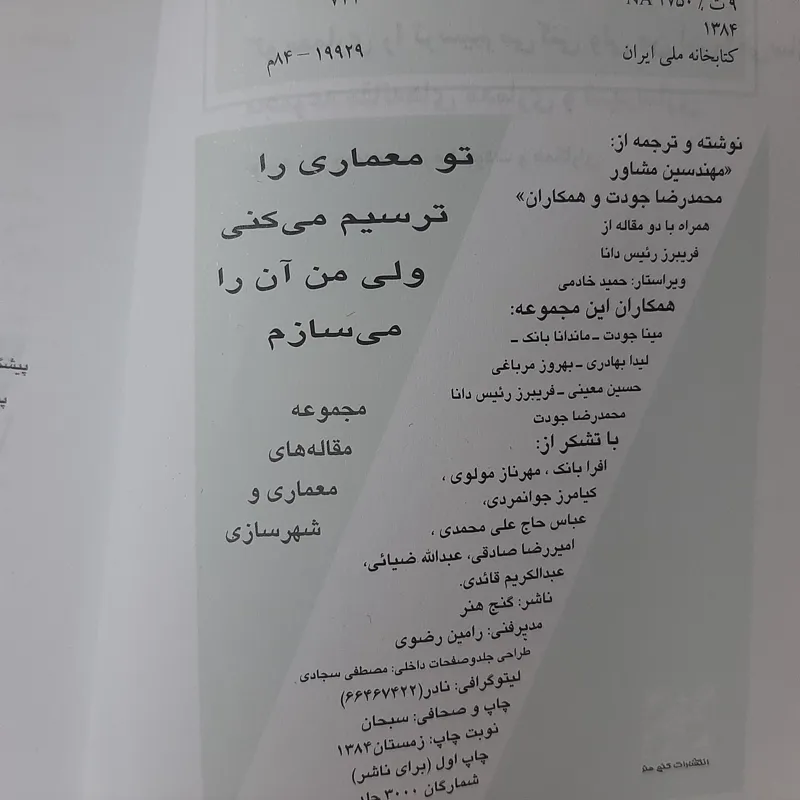 ۹ ت / ۱۷۵۰ NA
۱۳۸۴
کتابخانه ملی ایران
۱۹۹۲۹ – ۸۴م
تو معماری را
ترسیم می‌کنی
ولی من آن را
می‌سازم
مجموعه
مقاله‌های
معماری و
شهرسازی
نوشته و ترجمه از:
«مهندسین مشاور
محمدرضا جودت و همکاران»
همراه با دو مقاله از
فریبرز رئیس دانا
ویراستار: حمید خادمی
همکاران این مجموعه:
مینا جودت ـ ماندانا بانک ـ
لیدا بهادری ـ بهروز مرباغی
حسین معینی ـ فریبرز رئیس دانا
محمدرضا جودت
با تشکر از:
افرا بانک ، مهرناز مولوی ،
کیامرز جوانمردی،
عباس حاج علی محمدی ،
امیررضا صادقی، عبدالله ضیائی،
عبدالکریم قائدی.
ناشر: گنج هنر
مدیرفنی: رامین رضوی
طراحی جلدوصفحات داخلی: مصطفی سجادی .
لیتوگرافی: نادر(۶۶۴۶۷۴۲۲)
چاپ و صحافی: سبحان
نوبت چاپ: زمستان۱۳۸۴
چاپ اول (برای ناشر)
شمارگان ۳۰۰۰ جلد
انتشارات گنج هنر